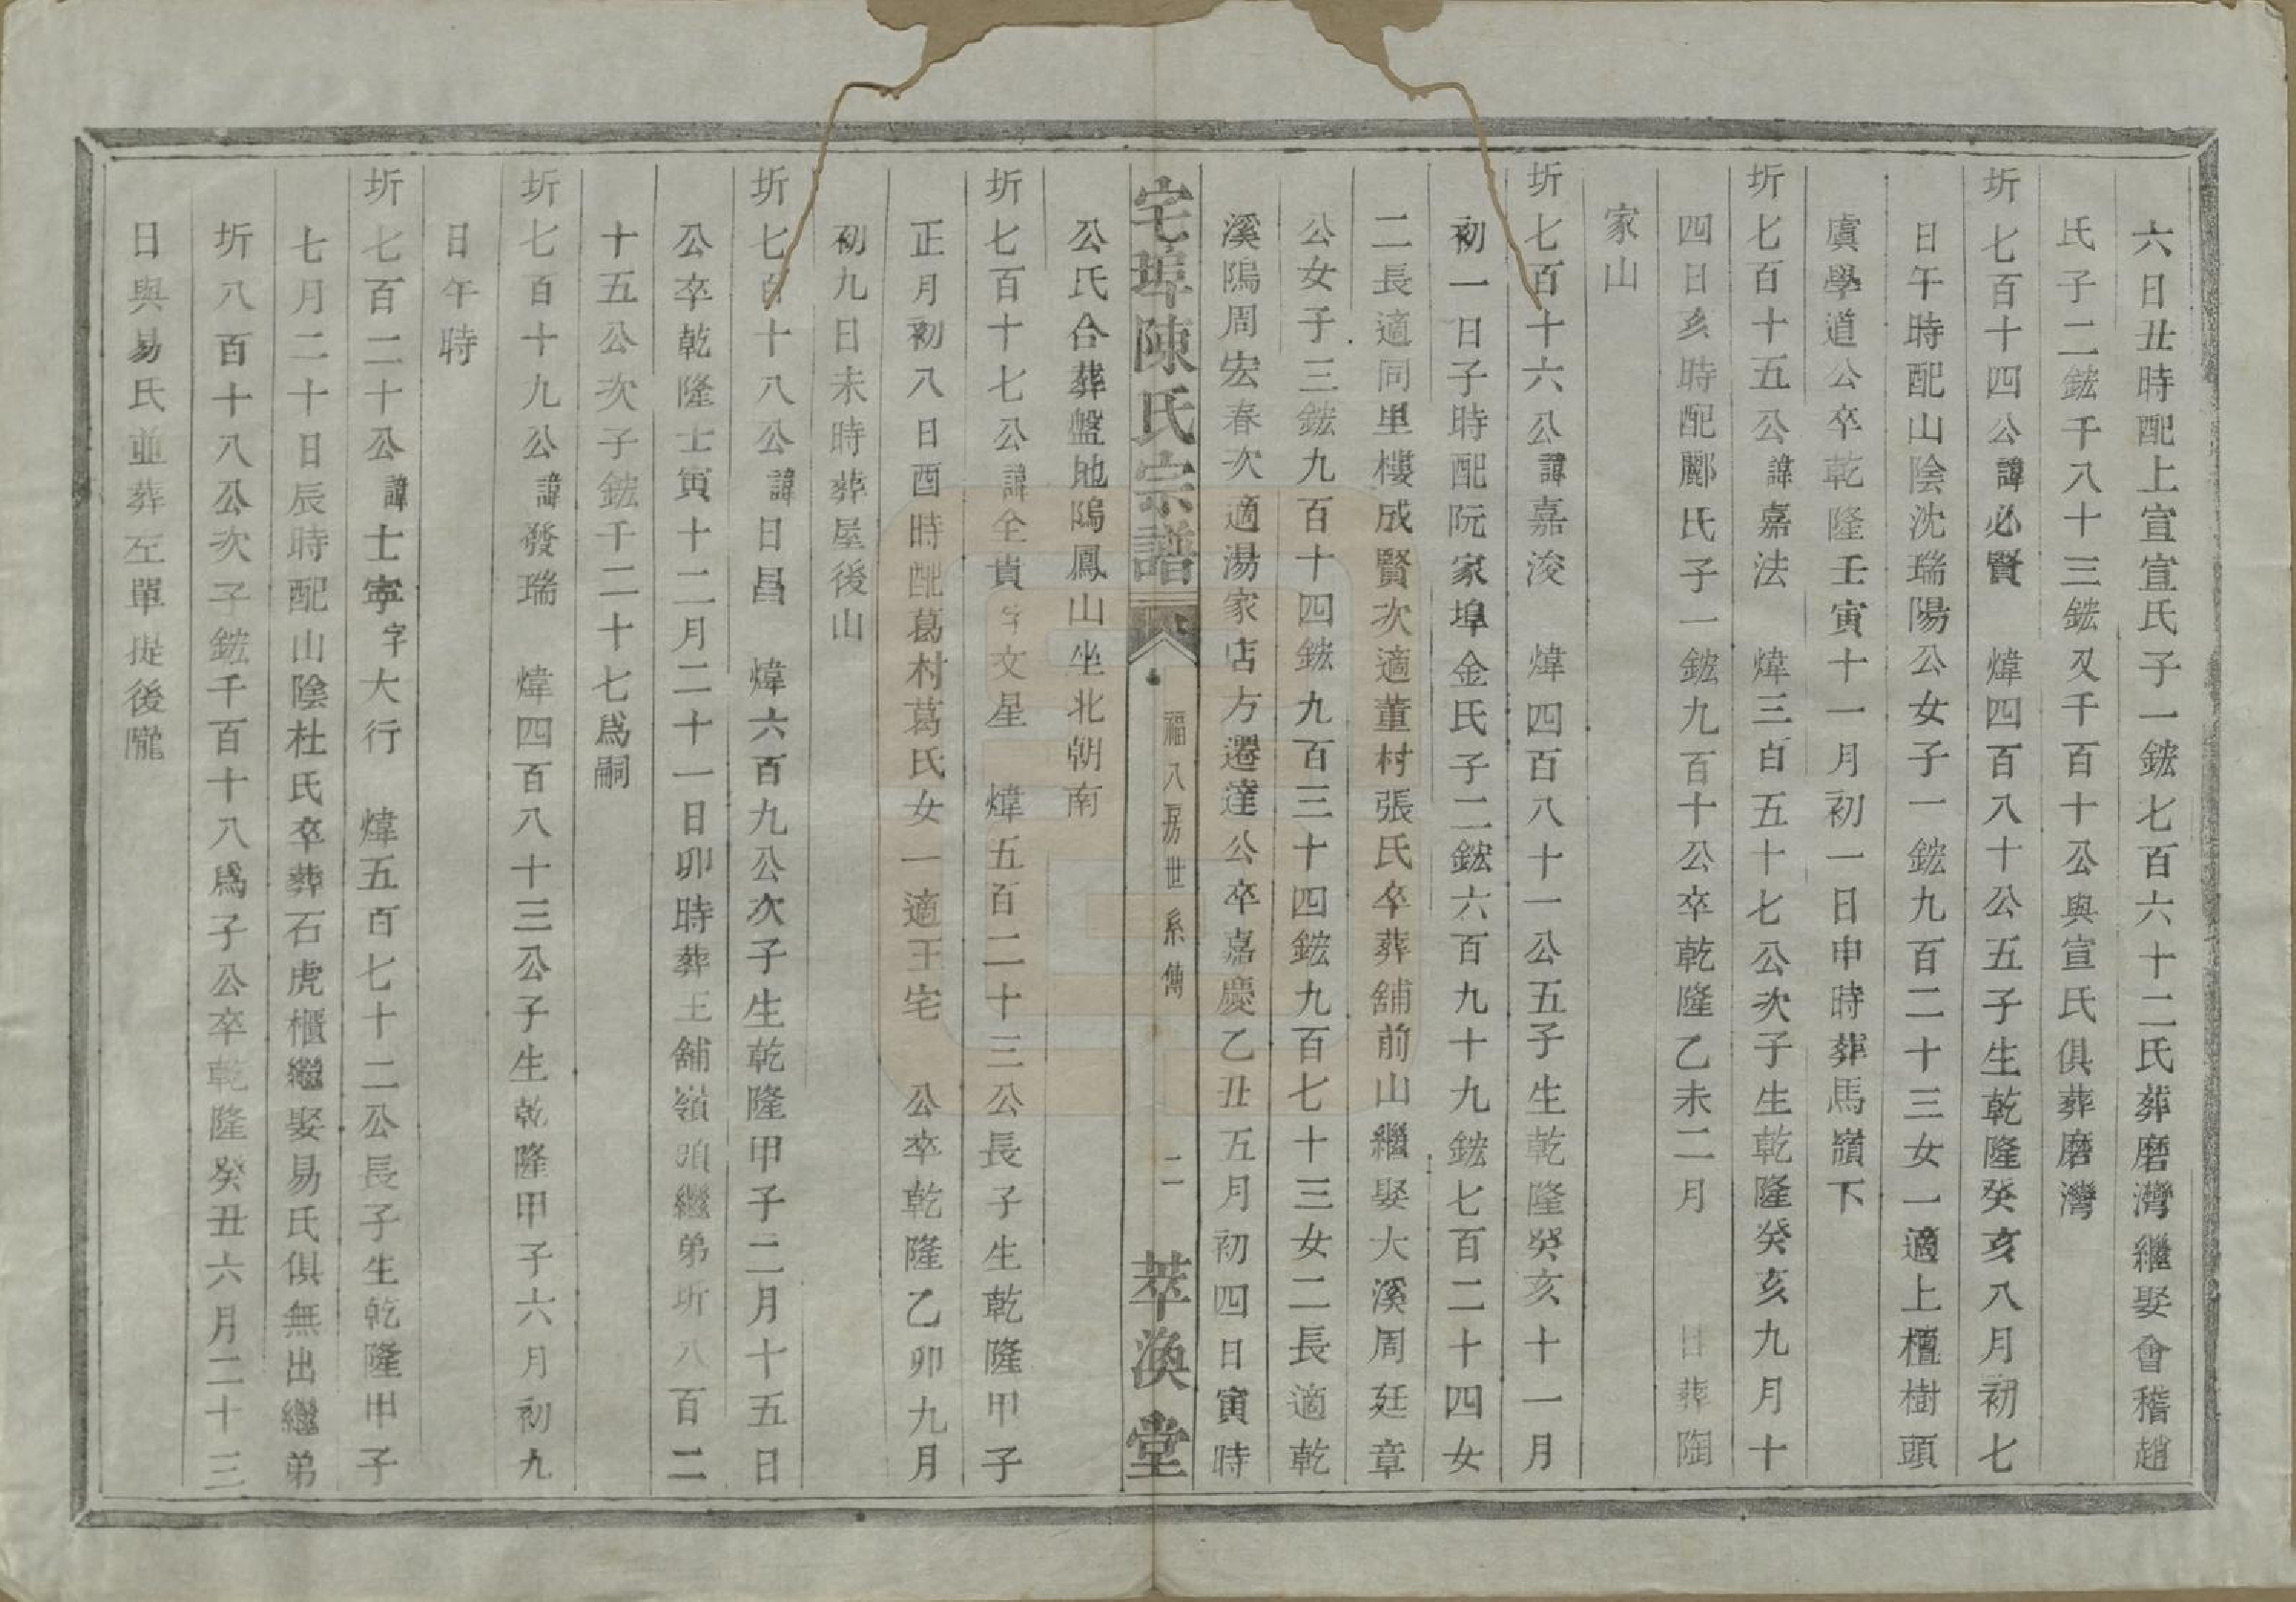 六日丑時配上宣宣氏子一鋐七百六十二氏葬磨灣繼娶會稽趙
氏子二鋐千八十三鋐又千百十公與宣氏俱葬磨灣
圻七百十四公諱必賢 煒四百八十公五子生乾隆癸亥八月初七
日午時配山陰沈瑞陽公女子一鋐九百二十三女一適上檀樹頭
虞學道公卒乾隆壬寅十一月初一日申時葬馬嶺下
圻七百十五公諱嘉法 煒三百五十七公次子生乾隆癸亥九月十
四日亥時配酈氏子一鋐九百十公卒乾隆乙未二月 日葬陶
家山
圻七百十六公諱嘉浚 煒四百八十一公五子生乾隆癸亥十一月
初一日子時配阮家埠金氏子二鋐六百九十九鋐七百二十四女
二長適同里樓成賢次適董村張氏卒葬舖前山繼娶大溪周廷章
公女子三鋐九百十四鋐九百三十四鋐九百七十三女二長適乾
溪隖周宏春次適湯家店方遷達公卒嘉慶乙丑五月初四日寅時
宅埠陳氏宗譜 福八房世系傳 二 萃渙堂
公氏合葬盤地隖鳳山坐北朝南
圻七百十七公諱全貴字文星 煒五百二十三公長子生乾隆甲子
正月初八日酉時配葛村葛氏女一適王宅 公卒乾隆乙卯九月
初九日未時葬屋後山
圻七百十八公諱日昌 煒六百九公次子生乾隆甲子二月十五日
公卒乾隆士寅十二月二十一日卯時葬王舖嶺頭繼弟圻八百二
十五公次子鋐千二十七爲嗣
圻七百十九公諱發瑞 煒四百八十三公子生乾隆甲子六月初九
日午時
圻七百二十公諱士寧字大行 煒五百七十二公長子生乾隆甲子
七月二十日辰時配山陰杜氏卒葬石虎櫃繼娶易氏俱無出繼弟
圻八百十八公次子鋐千百十八爲子公卒乾隆癸丑六月二十三
日與易氏並葬左單提後隴